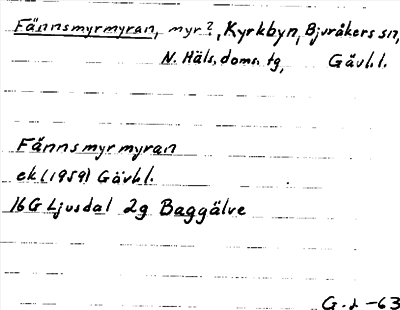 Fännsmyrmyran, myr?, Kyrkbyn, Bjuråkers sn,
N. Häls. doms. tg, Gävl.l.
Fännsmyrmyran
ek (1959) Gävl.l.
16G Ljusdal 2g Baggälve
-63